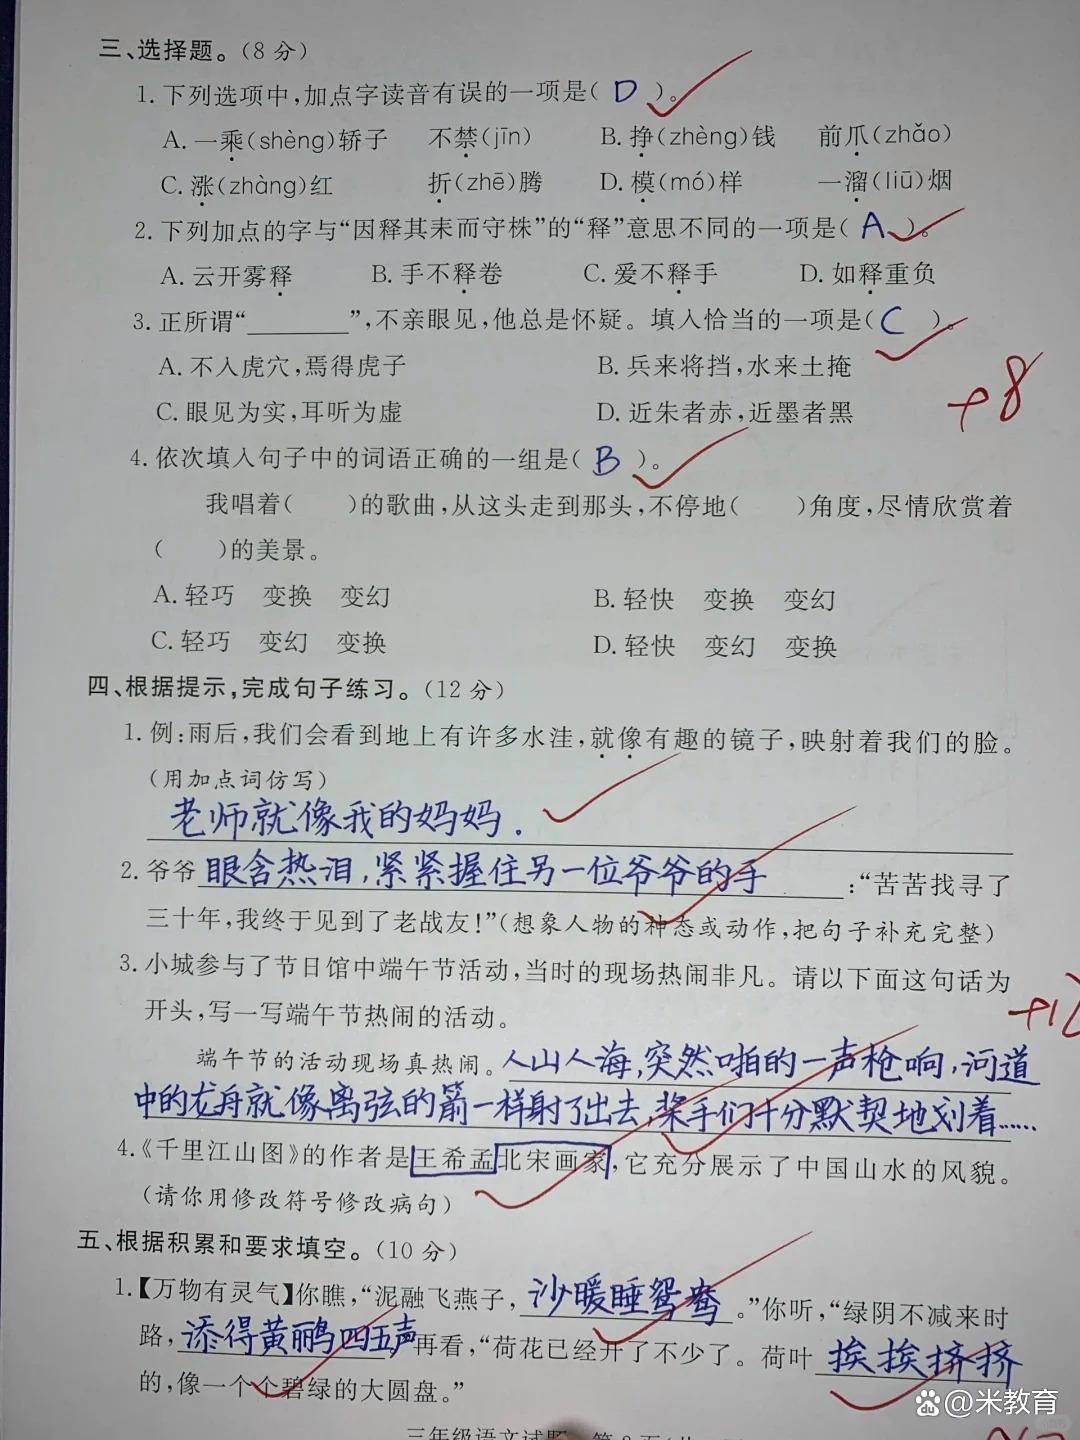 三、选择题。(8 分)
1. 下列选项中,加点字读音有误的一项是( D )。
A. 一乘(shèng)轿子 不禁(jīn) B. 挣(zhèng)钱 前爪(zhǎo)
C. 涨(zhàng)红 折(zhē)腾 D. 模(mó)样 一溜(liū)烟
2. 下列加点的字与“因释其耒而守株”的“释”意思不同的一项是( A )。
A. 云开雾释 B. 手不释卷 C. 爱不释手 D. 如释重负
3. 正所谓“________”,不亲眼见,他总是怀疑。填入恰当的一项是( C )。
A. 不入虎穴,焉得虎子 B. 兵来将挡,水来土掩
+8
C. 眼见为实,耳听为虚 D. 近朱者赤,近墨者黑
4. 依次填入句子中的词语正确的一组是( B )。
我唱着( )的歌曲,从这头走到那头,不停地( )角度,尽情欣赏着
( )的美景。
A. 轻巧 变换 变幻 B. 轻快 变换 变幻
C. 轻巧 变幻 变换 D. 轻快 变幻 变换
四、根据提示,完成句子练习。(12 分)
1. 例:雨后,我们会看到地上有许多水洼,就像有趣的镜子,映射着我们的脸。
(用加点词仿写)
老师就像我的妈妈.
2. 爷爷眼含热泪,紧紧握住另一位爷爷的手:“苦苦找寻了
三十年,我终于见到了老战友!”(想象人物的神态或动作,把句子补充完整)
3. 小城参与了节日馆中端午节活动,当时的现场热闹非凡。请以下面这句话为
开头,写一写端午节热闹的活动。
+12
端午节的活动现场真热闹。人山人海,突然啪的一声枪响,河道
中的龙舟就像离弦的箭一样射了出去,桨手们十分默契地划着……
4.《千里江山图》的作者是王希孟北宋画家,它充分展示了中国山水的风貌。
(请你用修改符号修改病句)
五、根据积累和要求填空。(10 分)
1.【万物有灵气】你瞧,“泥融飞燕子,沙暖睡鸳鸯。”你听,“绿阴不减来时
路,添得黄鹂四五声 再看,“荷花已经开了不少了。荷叶挨挨挤挤
的,像一个个碧绿的大圆盘。”
@米教育